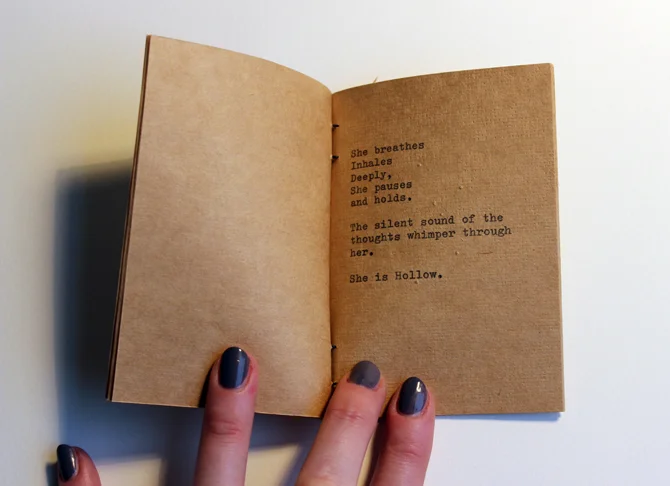 She breathes
Inhales
Deeply,
She pauses
and holds.
The silent sound of the
thoughts whimper through
her.
She is Hollow.